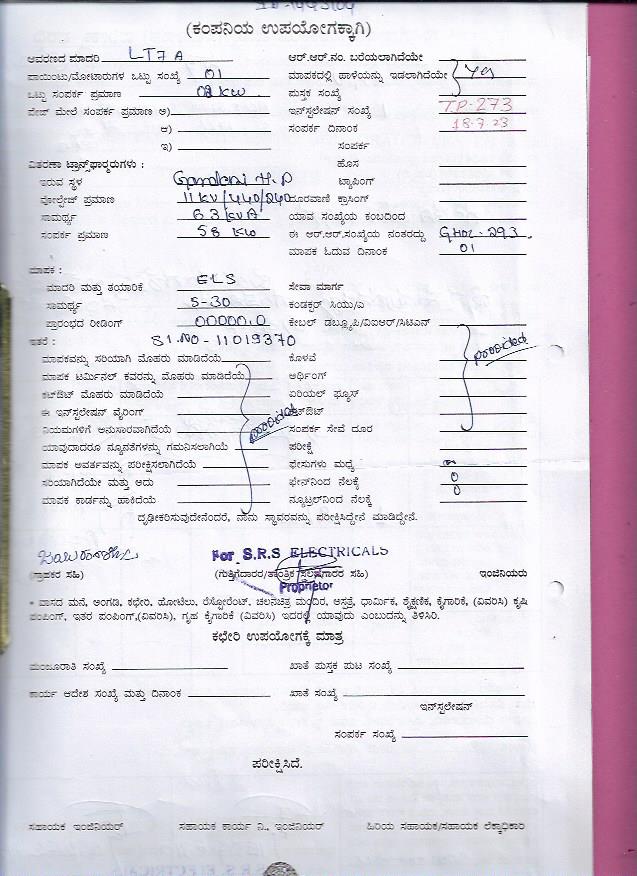 (ಕಂಪನಿಯ ಉಪಯೋಗಕ್ಕಾಗಿ)
ಆವರಣದ ಮಾದರಿ LT7A ಆರ್.ಆರ್.ನಂ. ಬರೆಯಲಾಗಿದೆಯೇ
ಪಾಯಿಂಟು/ಮೋಟಾರುಗಳ ಒಟ್ಟು ಸಂಖ್ಯೆ 01 ಮಾಪಕದಲ್ಲಿ ಹಾಳೆಯನ್ನು ಇಡಲಾಗಿದೆಯೇ Yes
ಒಟ್ಟು ಸಂಪರ್ಕ ಪ್ರಮಾಣ KW ಪುಸ್ತಕ ಸಂಖ್ಯೆ
ಪೇಜ್ ಮೇಲೆ ಸಂಪರ್ಕ ಪ್ರಮಾಣ ಅ) ಇನ್‌ಸ್ಟಲೇಷನ್ ಸಂಖ್ಯೆ T.P-273
ಆ) ಸಂಪರ್ಕ ದಿನಾಂಕ 18-7-23
ಇ) ಸಂಪರ್ಕ
ವಿತರಣಾ ಟ್ರಾನ್ಸ್‌ಫಾರ್ಮರುಗಳು : ಹೊಸ
ಇರುವ ಸ್ಥಳ ಟ್ಯಾಪಿಂಗ್
ವೋಲ್ಟೇಜ್ ಪ್ರಮಾಣ 11KV/440/240 ದೂರವಾಣಿ ಕ್ರಾಸಿಂಗ್
ಸಾಮರ್ಥ್ಯ 63 KVA ಯಾವ ಸಂಖ್ಯೆಯ ಕಂಬದಿಂದ
ಸಂಪರ್ಕ ಪ್ರಮಾಣ 58 KW ಈ ಆರ್.ಆರ್.ಸಂಖ್ಯೆಯ ನಂತರದ್ದು 293
ಮಾಪಕ ಓದುವ ದಿನಾಂಕ 01
ಮಾಪಕ :
ಮಾದರಿ ಮತ್ತು ತಯಾರಿಕೆ ELS ಸೇವಾ ಮಾರ್ಗ
ಸಾಮರ್ಥ್ಯ 5-30 ಕಂಡಕ್ಟರ್ ಸಿಯು/ಎ
ಪ್ರಾರಂಭದ ರೀಡಿಂಗ್ 00000.0 ಕೇಬಲ್ ಡಬ್ಲ್ಯೂಪಿ/ವಿಐಆರ್/ಸಿಟಿಎನ್
ಇತರೆ : Sl.NO-11019370
ಮಾಪಕವನ್ನು ಸರಿಯಾಗಿ ಮೊಹರು ಮಾಡಿದೆಯೆ ಕೊಳವೆ
ಮಾಪಕ ಟರ್ಮಿನಲ್ ಕವರನ್ನು ಮೊಹರು ಮಾಡಿದೆಯೆ ಅರ್ಥಿಂಗ್
ಕಟ್‌ಔಟ್ ಮೊಹರು ಮಾಡಿದೆಯೆ ಏರಿಯಲ್ ಫ್ಯೂಸ್
ಈ ಇನ್‌ಸ್ಟಲೇಷನ್ ವೈರಿಂಗ್ ಕಟ್‌ಔಟ್
ನಿಯಮಗಳಿಗೆ ಅನುಸಾರವಾಗಿದೆಯೆ ಸಂಪರ್ಕ ಸೇವೆ ದೂರ
ಯಾವುದಾದರೂ ನ್ಯೂನತೆಗಳನ್ನು ಗಮನಿಸಲಾಗಿಯೆ ಪರೀಕ್ಷೆ
ಮಾಪಕ ಅವರ್ತವನ್ನು ಪರೀಕ್ಷಿಸಲಾಗಿದೆಯೆ ಫೇಸುಗಳು ಮಧ್ಯೆ
ಸರಿಯಾಗಿದೆಯೇ ಮತ್ತು ಅದು ಫೇಸ್‌ನಿಂದ ನೆಲಕ್ಕೆ 0
ಮಾಪಕ ಕಾರ್ಡನ್ನು ಹಾಕಿದೆಯೆ ನ್ಯೂಟ್ರಲ್‌ನಿಂದ ನೆಲಕ್ಕೆ 0
ದೃಢೀಕರಿಸುವುದೇನೆಂದರೆ, ನಾನು ಸ್ಥಾವರವನ್ನು ಪರೀಕ್ಷಿಸಿದ್ದೇನೆ ಮಾಡಿದ್ದೇನೆ.
For S.R.S ELECTRICALS
(ಗ್ರಾಹಕರ ಸಹಿ) (ಗುತ್ತಿಗೆದಾರರ/ತಾಂತ್ರಿಕ ಸಲಹೆಗಾರರ ಸಹಿ) ಇಂಜಿನಿಯರು
Proprietor
* ವಾಸದ ಮನೆ, ಅಂಗಡಿ, ಕಛೇರಿ, ಹೋಟೆಲು, ರೆಸ್ಟೋರೆಂಟ್, ಚಲನಚಿತ್ರ ಮಂದಿರ, ಆಸ್ಪತ್ರೆ, ಧಾರ್ಮಿಕ, ಶೈಕ್ಷಣಿಕ, ಕೈಗಾರಿಕೆ, (ವಿವರಿಸಿ) ಕೃಷಿ
ಪಂಪಿಂಗ್, ಇತರ ಪಂಪಿಂಗ್,(ವಿವರಿಸಿ), ಗೃಹ ಕೈಗಾರಿಕೆ (ವಿವರಿಸಿ) ಇದರಲ್ಲಿ ಯಾವುದು ಎಂಬುದನ್ನು ತಿಳಿಸಿರಿ.
ಕಛೇರಿ ಉಪಯೋಗಕ್ಕೆ ಮಾತ್ರ
ಮಂಜೂರಾತಿ ಸಂಖ್ಯೆ ಖಾತೆ ಪುಸ್ತಕ ಪುಟ ಸಂಖ್ಯೆ
ಕಾರ್ಯ ಆದೇಶ ಸಂಖ್ಯೆ ಮತ್ತು ದಿನಾಂಕ ಖಾತೆ ಸಂಖ್ಯೆ
ಇನ್‌ಸ್ಟಲೇಷನ್
ಸಂಪರ್ಕ ಸಂಖ್ಯೆ
ಪರೀಕ್ಷಿಸಿದೆ.
ಸಹಾಯಕ ಇಂಜಿನಿಯರ್ ಸಹಾಯಕ ಕಾರ್ಯ ನಿ., ಇಂಜಿನಿಯರ್ ಹಿರಿಯ ಸಹಾಯಕ/ಸಹಾಯಕ ಲೆಕ್ಕಾಧಿಕಾರಿ